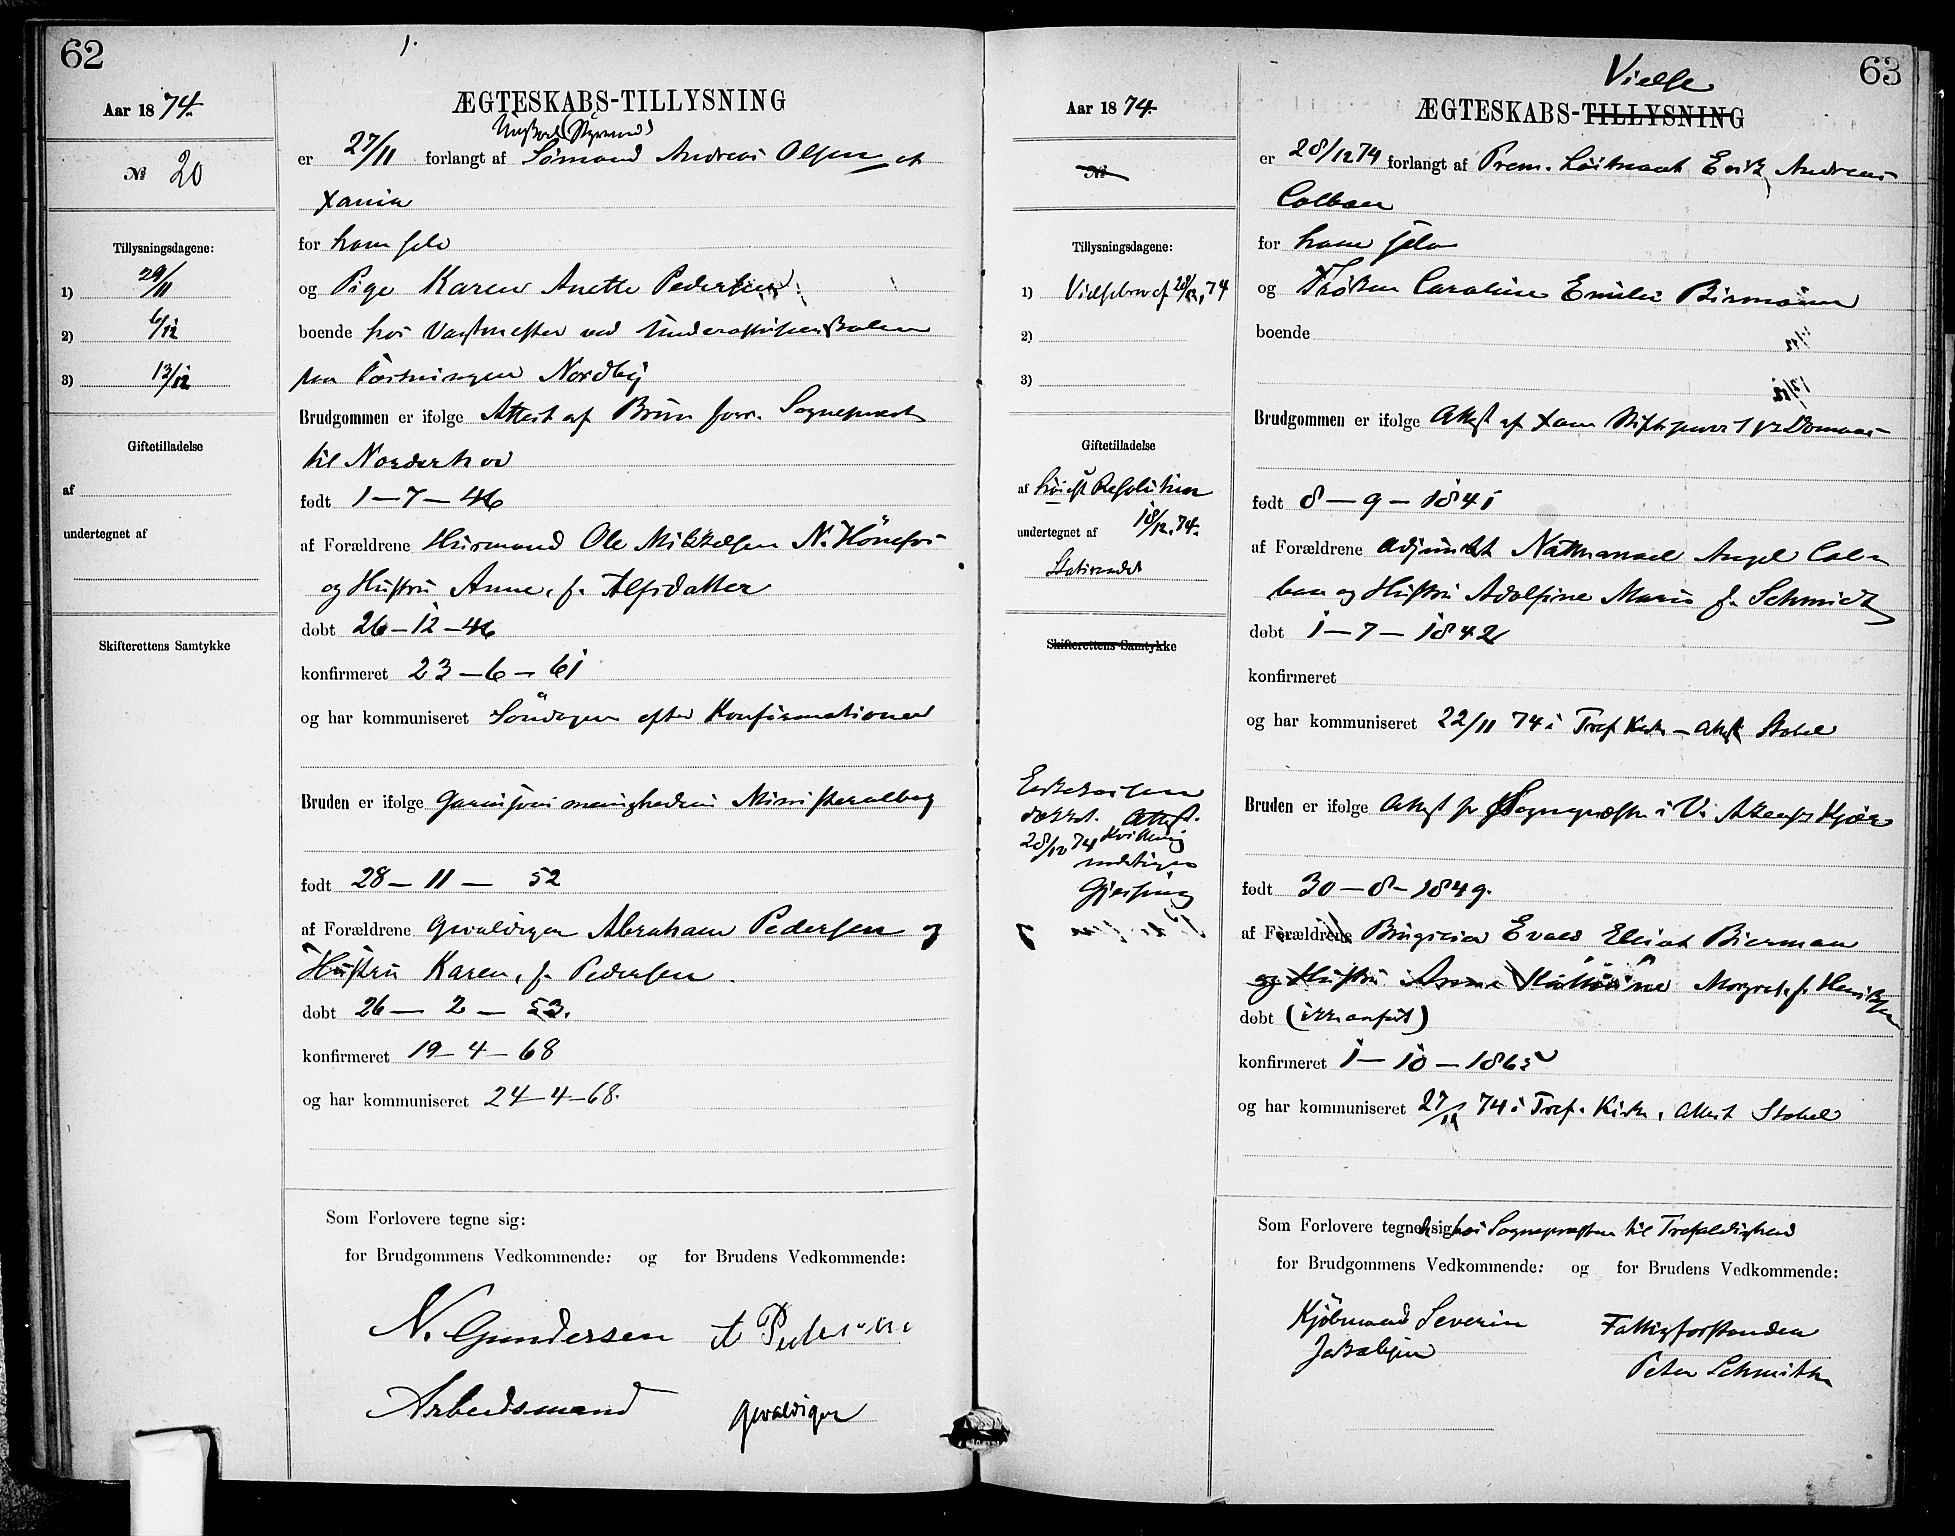 62
1.
Aar 1874.
№ 20
Tillysningsdagene:
1) 29/11
2) 6/12
3) 13/12
Giftetilladelse
af
undertegnet af
Skifterettens Samtykke
ÆGTESKABS-TILLYSNING
Ungkarl (Styrmand)
er 27/11 forlangt af Sømand Andreas Olsen af
Xania
for ham selv
og Pige Karen Anette Pedersen
boende hos Vagtmester ved Underofficersskolen
paa Fæstningen Nordbÿ
Brudgommen er ifølge Attest af Brun forr. Sognepræst
til Norderhov
født 1-7-46
af Forældrene Husmand Ole Mikkelsen N. Hönefos
og Hustru Anne, f. Alfsdatter
døbt 26-12-46
konfirmeret 23-6-61
og har kommuniseret Söndagen efter Konfirmationen
Bruden er ifølge Garnisonsmenighedens Ministerialbog
født 28-11-52
af Forældrene Gevaldiger Abraham Pedersen og
Hustru Karen, f. Pedersen.
døbt 26-2-53.
konfirmeret 19-4-68
og har kommuniseret 24-4-68.
Som Forlovere tegne sig:
for Brudgommens Vedkommende: og for Brudens Vedkommende:
N. Gundersen A Pedersen
Arbeidsmand Gevaldiger
63
Aar 1874.
№
Tillysningsdagene:
1) Vielsesbrev af 28/12, 74
2)
3)
Giftetilladelse
af høiest Resolution
undertegnet af 18/12. 74.
Skifterettens Samtykke
Attest.
28/12 74 Kvittering
Gjessing
Vielse
ÆGTESKABS-TILLYSNING
er 28/12 74 forlangt af Prem. Løitnant Erik Andreas
Colban
for ham selv
og Frøken Caroline Emilie Birmann
boende
Brudgommen er ifølge Attest af Xania Stiftsprovst
født 8-9-1841
af Forældrene Adjunkt Nathanael Angel Col-
ban og Hustru Adolfine Marie f. Schmidt
døbt 1-7-1842
konfirmeret
og har kommuniseret 22/11 74 i Tref Kirke - Attest
Bruden er ifølge Attest fr Sognepræsten i V. Akers Kjær
født 30-8-1849.
af Forældrene Evald Bierman
og Hustru Margret. f. Henriksen
døbt (ikke anført)
konfirmeret 1-10-1865
og har kommuniseret 27/11 74 i Tref. Kirke, Attest
Som Forlovere tegne sig hos Sognepræsten til Trefoldighed
for Brudgommens Vedkommende: og for Brudens Vedkommende:
Kjöbmand Severin Fattigforstander
Jakobsen Peter Schmidth